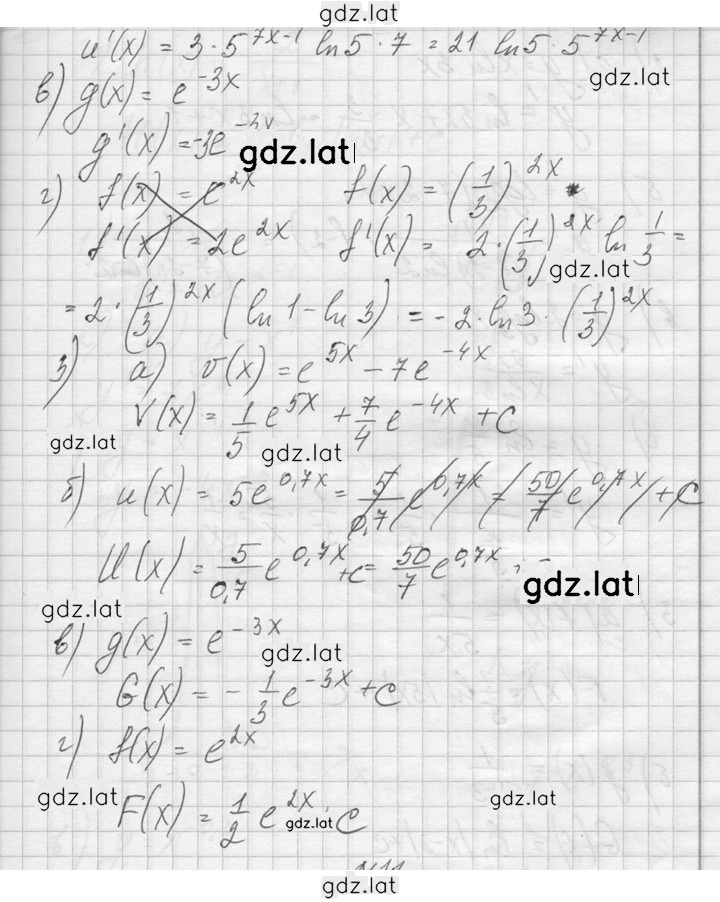 gdz.lat
u'(x) = 3 · 5^{7x-1} ln5 · 7 = 21 ln5 · 5^{7x-1}
gdz.lat
в) g(x) = e^{-3x}
g'(x) = -3e^{-3x}
gdz.lat
г) f(x) = e^{2x} f(x) = (1/3)^{2x}
f'(x) = 2e^{2x} f'(x) = 2 · (1/3)^{2x} ln 1/3 =
gdz.lat
= 2 · (1/3)^{2x} (ln1 - ln3) = -2 · ln3 · (1/3)^{2x}
3) а) v(x) = e^{5x} - 7e^{-4x}
V(x) = 1/5 e^{5x} + 7/4 e^{-4x} + C
gdz.lat gdz.lat
б) u(x) = 5e^{0,7x} = 5/0,7 e^{0,7x} = 50/7 e^{0,7x} + C
U(x) = 5/0,7 e^{0,7x} + C = 50/7 e^{0,7x}
gdz.lat
в) g(x) = e^{-3x}
gdz.lat
G(x) = - 1/3 e^{-3x} + C
г) f(x) = e^{2x}
gdz.lat gdz.lat
F(x) = 1/2 e^{2x} C
gdz.lat
N11
gdz.lat